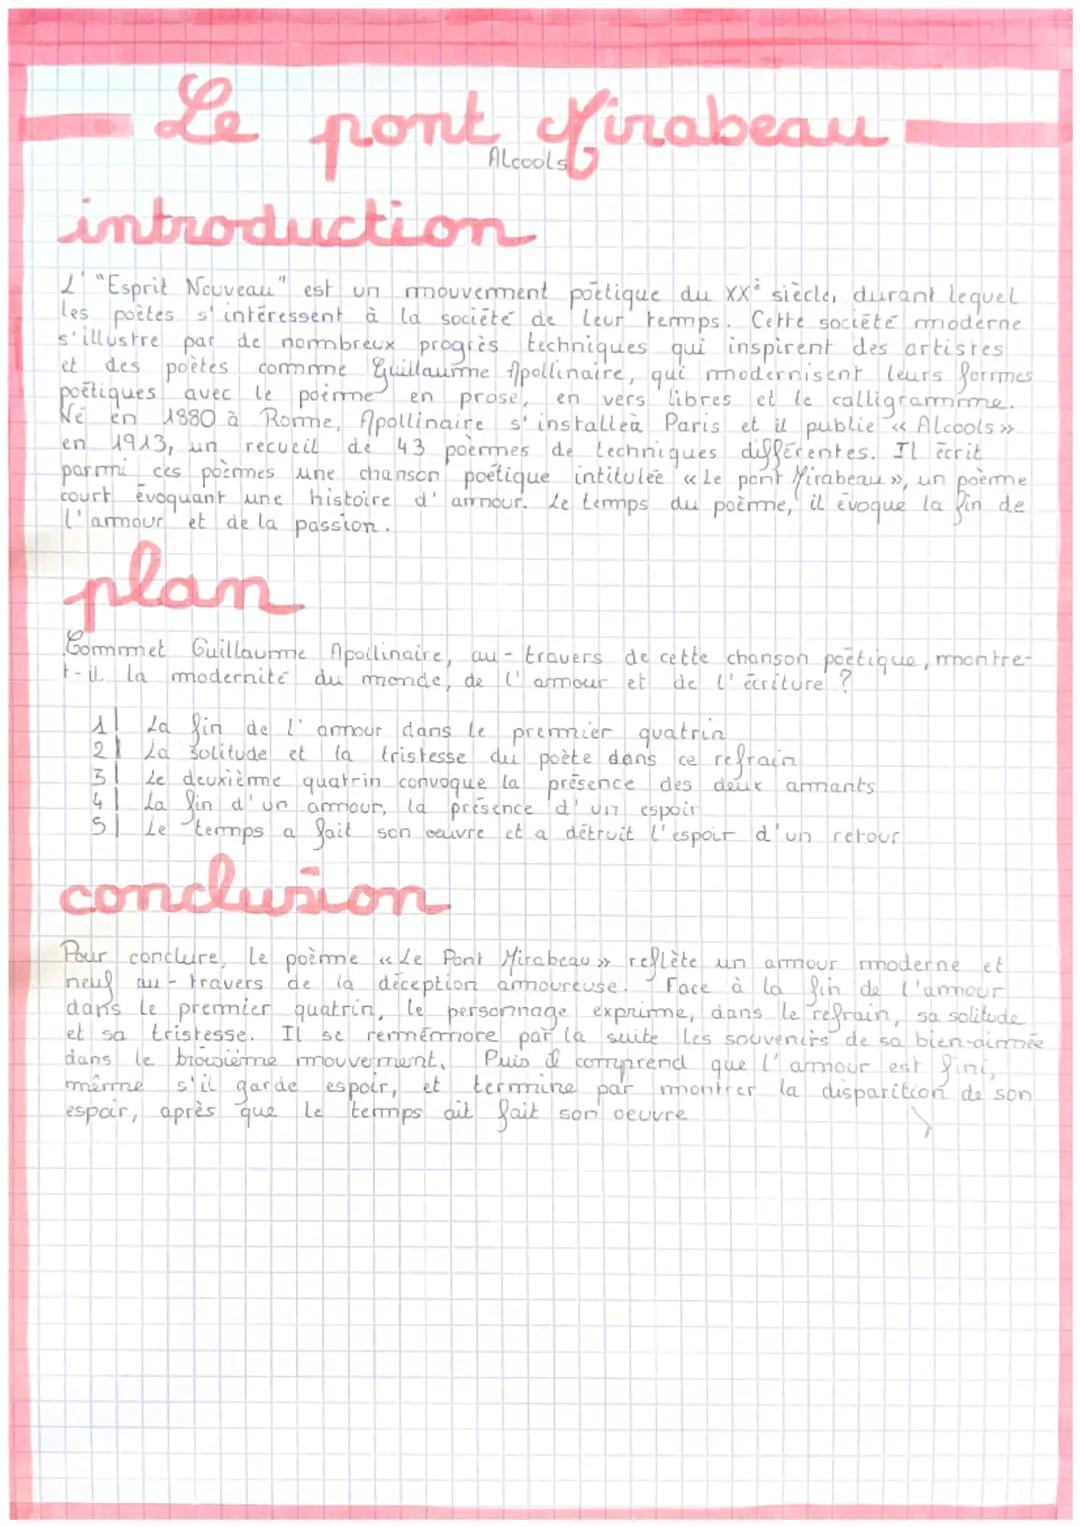 Le pont Mirabeau
Alcools
introduction
L' "Esprit Nouveau" est un mouvement poétique du XXè siècle, durant lequel
les poètes s'intéressent à la société de leur temps. Cette société moderne
s'illustre par de nombreux progrès techniques qui inspirent des artistes
et des poètes comme Guillaume Apollinaire, qui modernisent leurs formes
poétiques avec le poème en prose, en vers libres et le calligramme.
Né en 1880 à Rome, Apollinaire s'installe à Paris et il publie « Alcools »
en 1913, un recueil de 43 poèmes de techniques différentes. Il écrit
parmi ces poèmes une chanson poétique intitulée « Le pont Mirabeau », un poème
court évoquant une histoire d'amour. Le temps du poème, il évoque la fin de
l'amour et de la passion.
plan
Commet Guillaume Apollinaire, au-travers de cette chanson poétique, montre-
t-il la modernité du monde, de l'amour et de l'écriture ?
1| La fin de l'amour dans le premier quatrin
2| La solitude et la tristesse du poète dans ce refrain
3| Le deuxième quatrin convoque la présence des deux amants
4| La fin d'un amour, la présence d'un espoir
5| Le temps a fait son œuvre et a détruit l'espoir d'un retour
conclusion
Pour conclure, le poème « Le Pont Mirabeau » reflète un amour moderne et
neuf au-travers de la déception amoureuse. Face à la fin de l'amour
dans le premier quatrin, le personnage exprime, dans le refrain, sa solitude
et sa tristesse. Il se remémore par la suite les souvenirs de sa bien-aimée
dans le troisième mouvement. Puis il comprend que l'amour est fini,
même s'il garde espoir, et termine par montrer la disparition de son
espoir, après que le temps ait fait son oeuvre